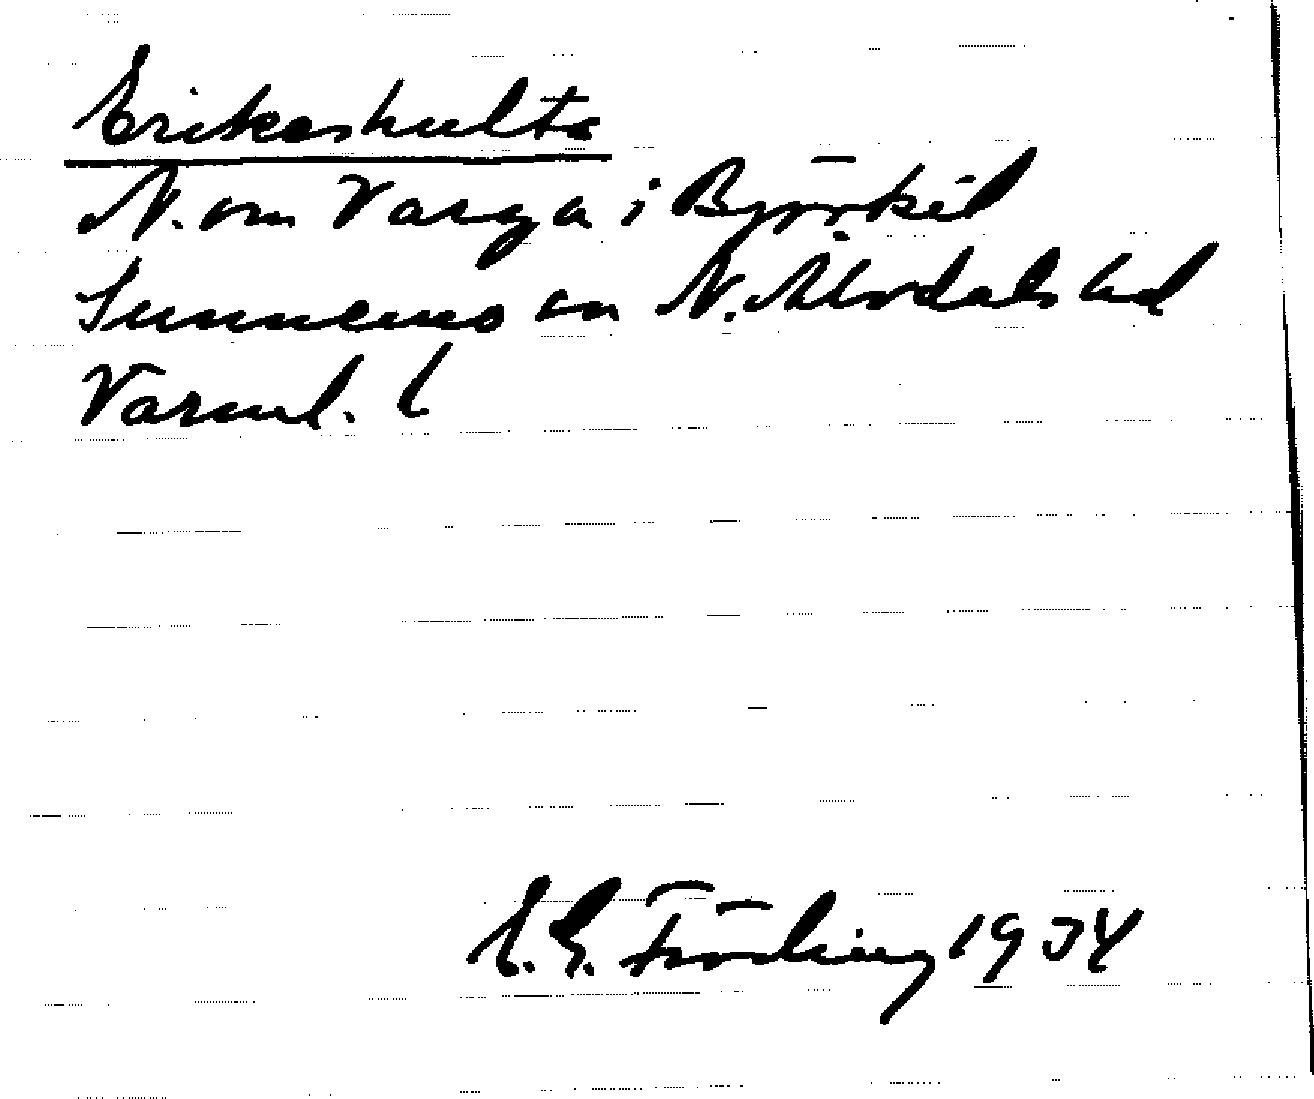 Erikshults
N. om Varga i Björkil
Sunnemo sn N. Älvdals hd
Värml. l
E. G. Fröding 1934